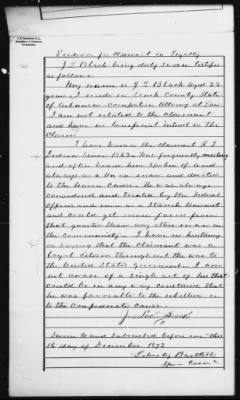 Evidence for Claimant on Loyalty
J. T. Black being duly sworn testifies
as follows.
My name is J T Black Aged 33
years I reside in County State
of Arkansas occupation Attorney at Law
I am not related to the claimant
and have no beneficial interest in the
Claim
I have known the claimant R. F.
since 1862 was frequently
and often heard him spoken of and
always as a Union man and devoted
to the Union Cause. He was always
considered and treated by the Federal
Officers and men as a Staunch Unionist
and could get more favors from
that quarter than any other man in
the community. I have no hesitancy
in saying that the claimant was a
loyal citizen throughout the war to
the United States government. I am
not aware of a single act of his that
could be in any way construed that
he was favorable to the rebellion or
to the Confederate Cause.
J. Black
Sworn to and subscribed before me this
16 day of December 1873
Liberty Bartlett
Spe- Com-